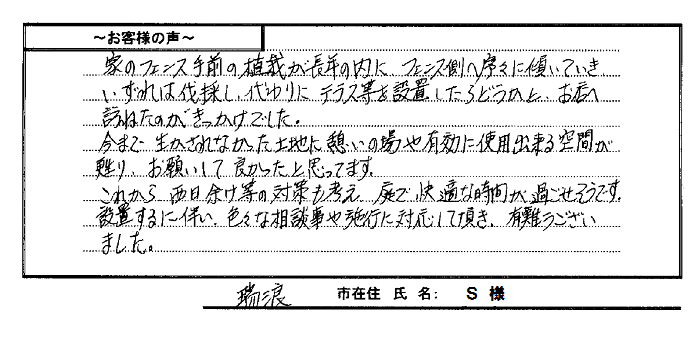 ～お客様の声～
家のフェンス手前の植栽が長年の内に フェンス側へ序々に傾いていき
いずれは伐採し、代わりに テラス等を設置したらどうかと、お店へ
訪ねたのがきっかけでした。
今まで 生かされなかった土地に憩いの場や有効に使用出来る空間が
甦り、お願いして 良かったと思ってます。
これから 西日余け等の対策も考え、庭で快適な時間が過ごせそうです。
設置するに伴い、色々な相談事や施行に対応して頂き、有難うござい
ました。
瑞浪 市在住 氏 名： S 様